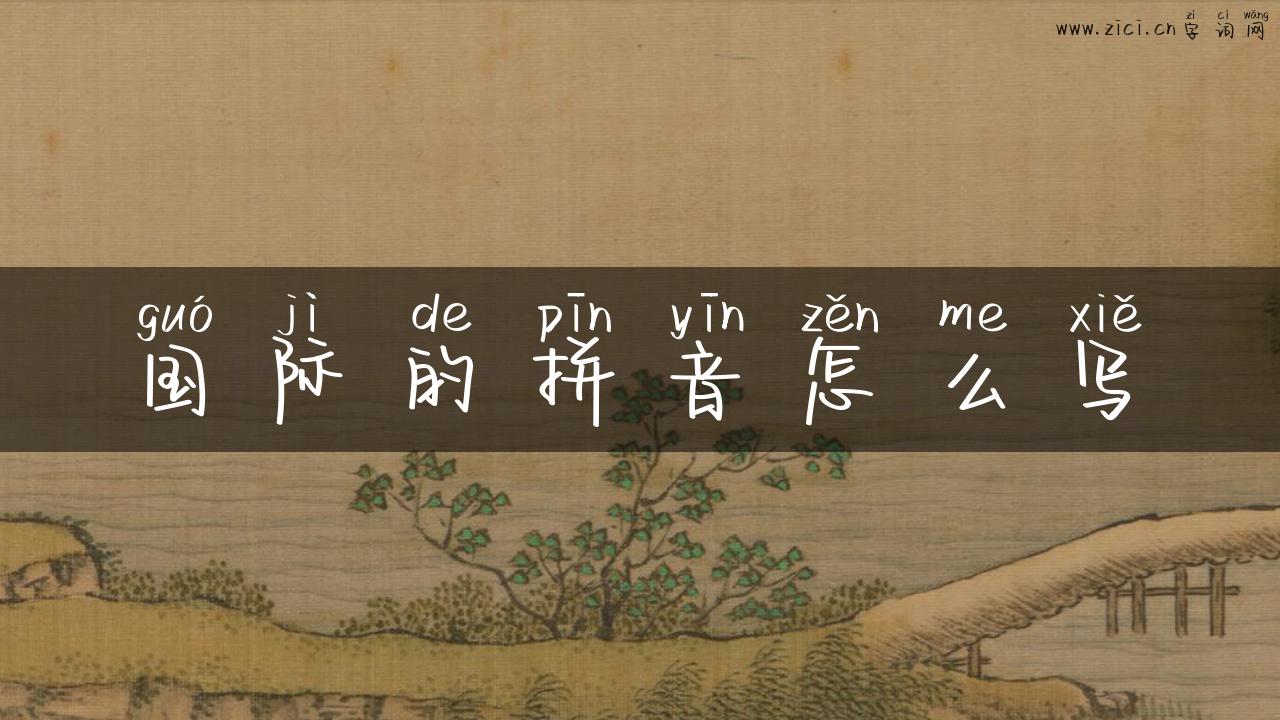 zì cí wǎng
www.zici.cn 字词网
guó jì de pīn yīn zěn me xiě
国际的拼音怎么写